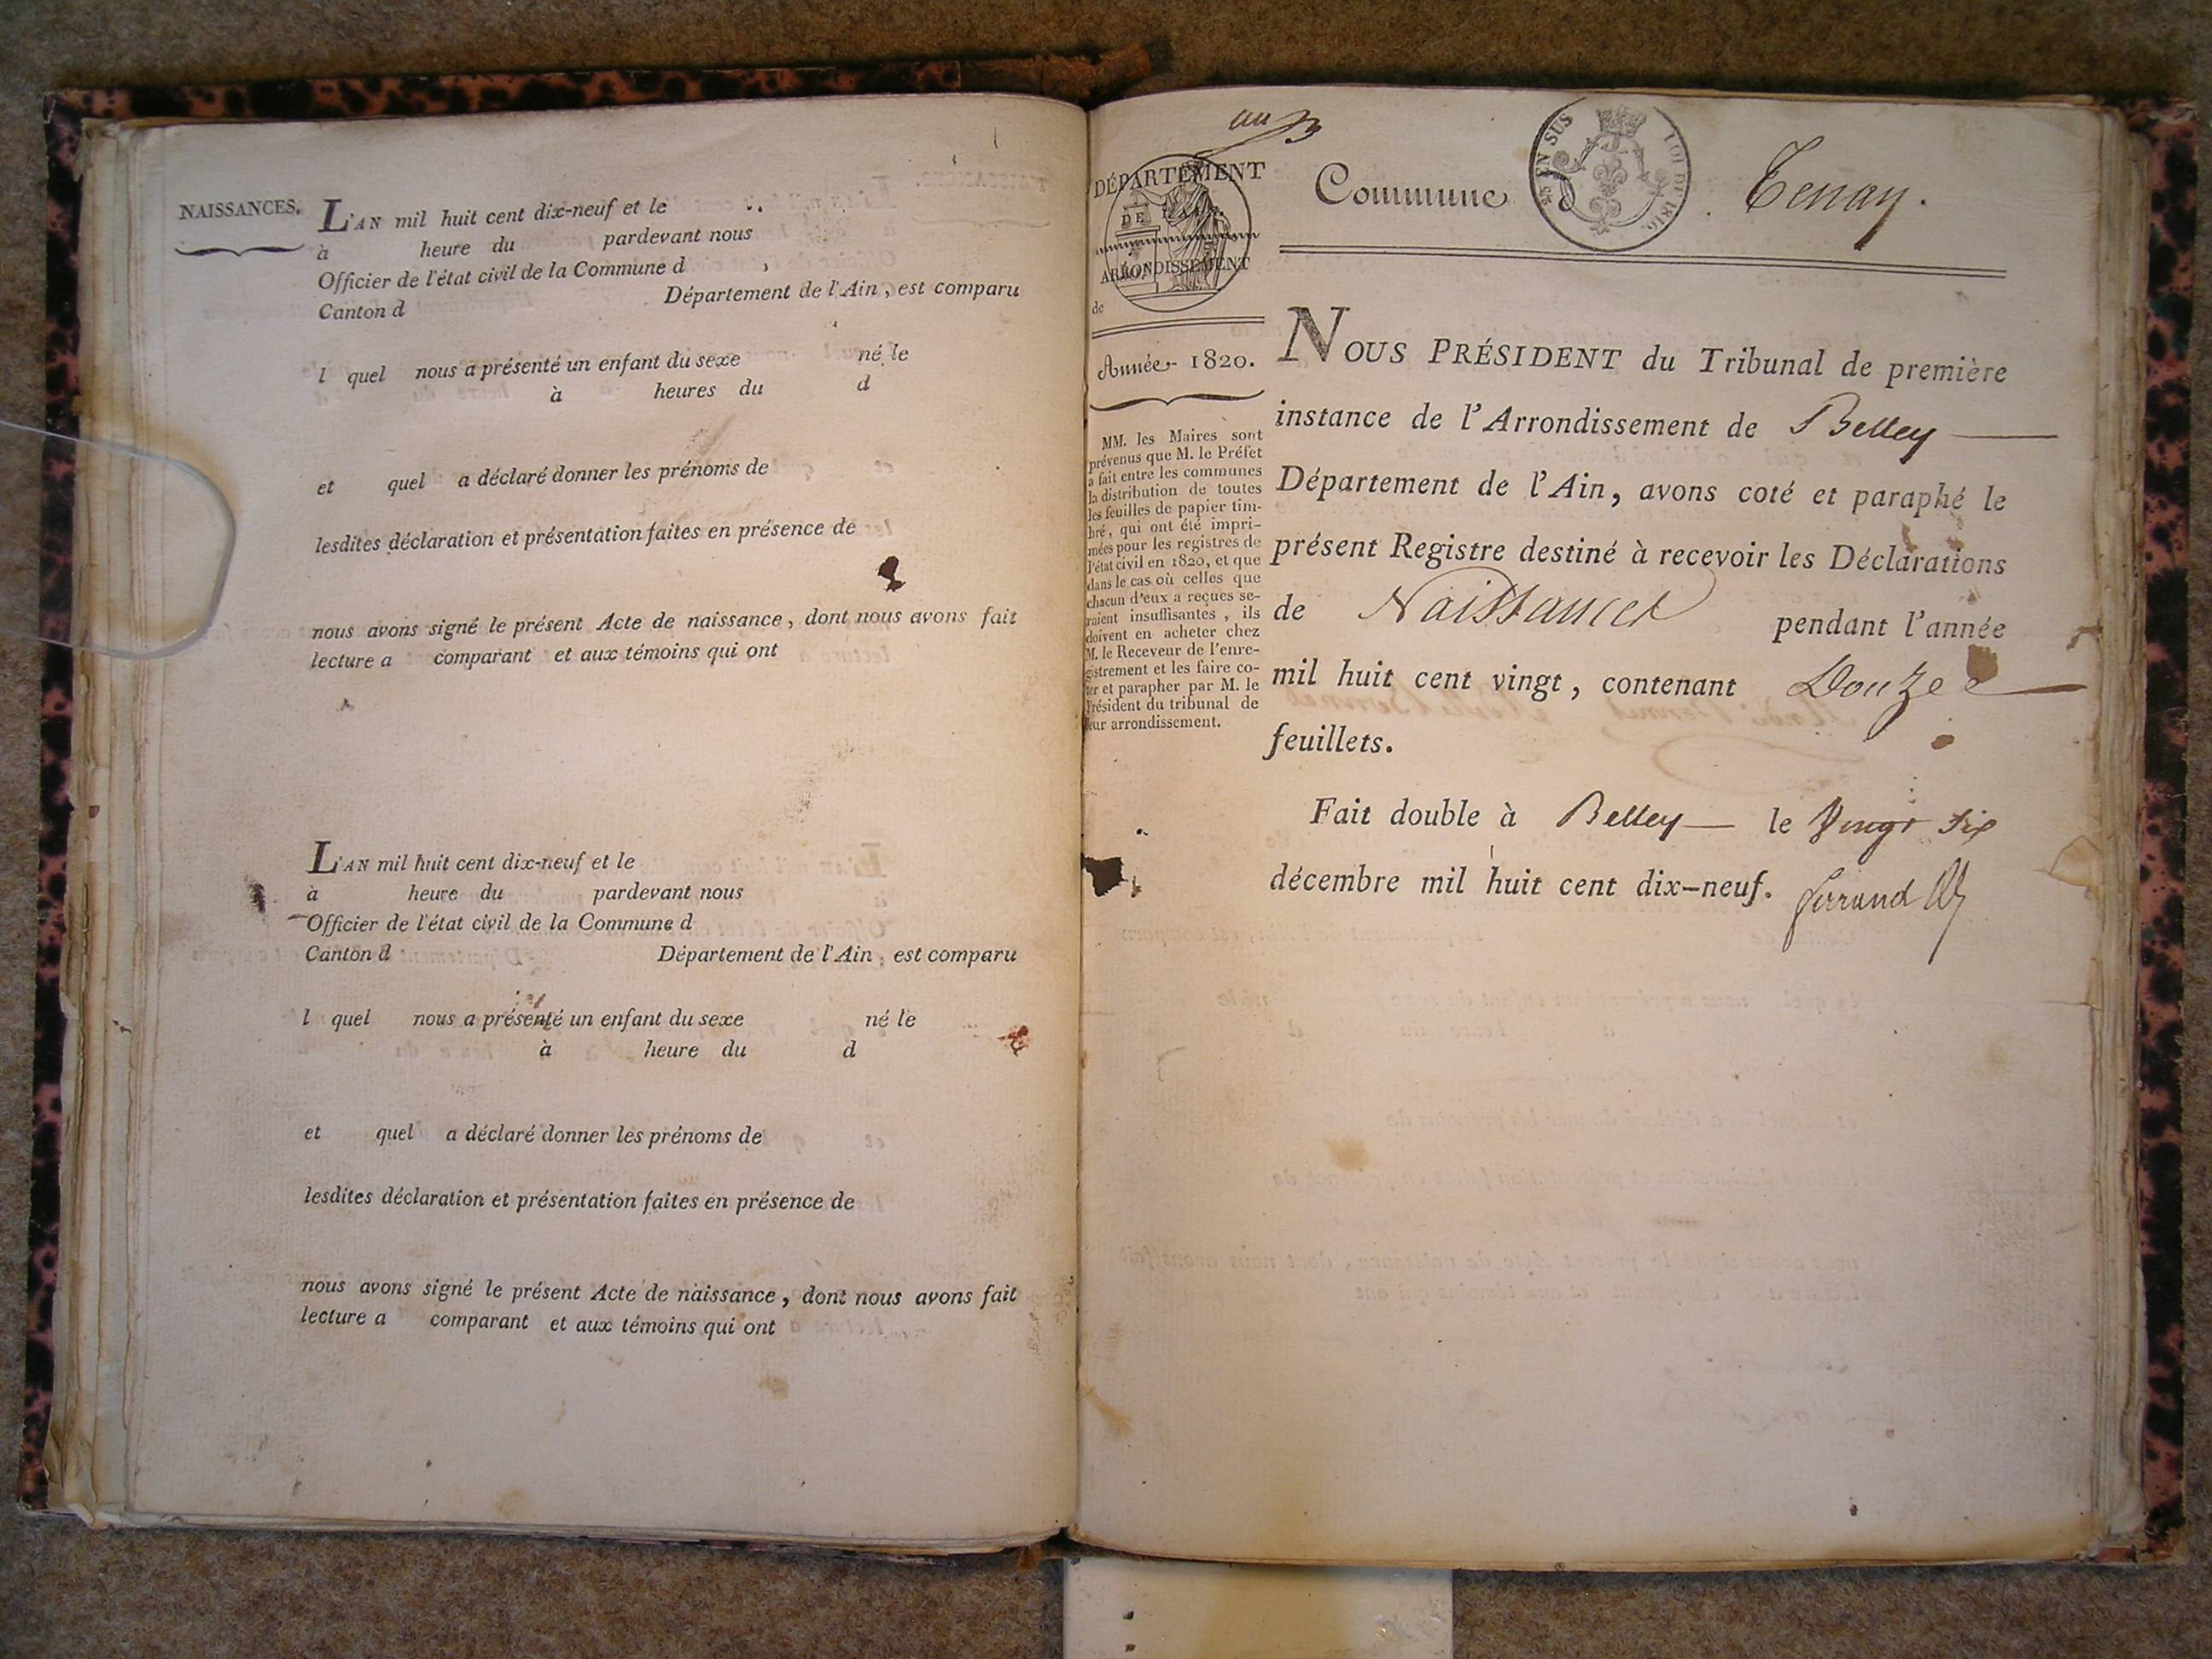 NAISSANCES.
L'AN mil huit cent dix-neuf et le
à heure du pardevant nous
Officier de l'état civil de la Commune d
Canton d Département de l'Ain, est comparu
l quel nous a présenté un enfant du sexe né le
à heures du d
et quel a déclaré donner les prénoms de
lesdites déclaration et présentation faites en présence de
nous avons signé le présent Acte de naissance, dont nous avons fait
lecture a comparant et aux témoins qui ont
L'AN mil huit cent dix-neuf et le
à heure du pardevant nous
Officier de l'état civil de la Commune d
Canton d Département de l'Ain, est comparu
l quel nous a présenté un enfant du sexe né le
à heure du d
et quel a déclaré donner les prénoms de
lesdites déclaration et présentation faites en présence de
nous avons signé le présent Acte de naissance, dont nous avons fait
lecture a comparant et aux témoins qui ont
DÉPARTEMENT
DE L'AIN.
ARRONDISSEMENT
de
Année 1820.
MM. les Maires sont
prévenus que M. le Préfet
a fait entre les communes
la distribution de toutes
les feuilles de papier tim-
bré, qui ont été impri-
mées pour les registres de
l'état civil en 1820, et que
dans le cas où celles que
chacun d'eux a reçues se-
raient insuffisantes, ils
doivent en acheter chez
M. le Receveur de l'enre-
gistrement et les faire co-
ter et parapher par M. le
Président du tribunal de
leur arrondissement.
Commune d Tenay.
EN SUS LOI DE 1816.
NOUS PRÉSIDENT du Tribunal de première
instance de l'Arrondissement de Belley
Département de l'Ain, avons coté et paraphé le
présent Registre destiné à recevoir les Déclarations
de Naissances pendant l'année
mil huit cent vingt, contenant Douze
feuillets.
Fait double à Belley le Vingt six
décembre mil huit cent dix-neuf.